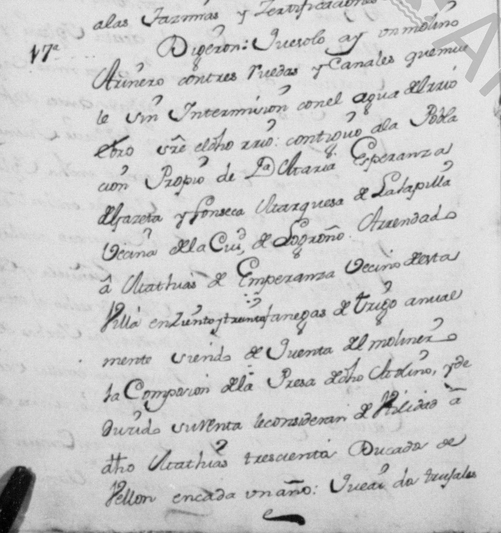 alas Tazmias y Zertificaciones
17ª Digeron: Que solo ay un molino
Arinero con tres ruedas y Canales que mue
le sin Intermision con el agua del rrio
ebro sre el dho rrio: contiguo a la Pobla
cion Propio de Dª Maria Esperanza
de fazeta y fonseca Marquesa de la Lapilla
Vecina de la Ciud de Logroño Arrendado
â Mathias de Emperanza Vecino de esta
Villa en Ziento y treinta fanegas de trigo anual
mente siendo de Quenta del molinero
la Composicion de la Presa de dho Molino, y de
ducido su renta le consideran de Utilidad â
dho Mathias trescientos Ducados de
Vellon en cada un año: Que ai dos